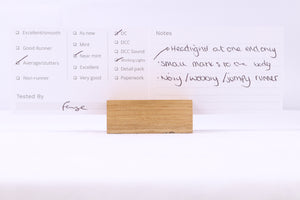 Excellent/smooth
Good Runner
Average/stutters
Non-runner
Tested By
As new
Mint
Near mint
Excellent
Very good
DC
DCC
DCC Sound
Working Lights
Detail pack
Paperwork
Notes
Headlights at one end only
· Small marks to the body
· Noisy / wobbly / jumpy runner